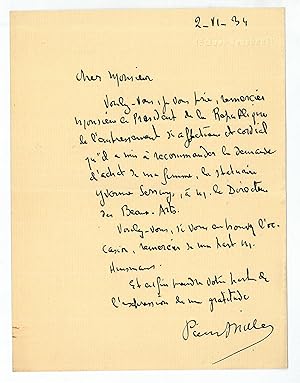 2_VI_34
Cher Monsieur
Voulez-vous, je vous prie, remercier
Monsieur le Président de la République
de l'empressement si affectueux et cordial
qu'il a mis à recommander la demande
d'achat de ma femme, la statuaire
Yvonne Serruys, à M. le Directeur
des Beaux-Arts.
Voulez-vous, si vous en trouvez l'oc-
casion, remercier de ma part M.
Huismans.
Et enfin prendre votre part de
l'expression de ma gratitude
Pierre Mille